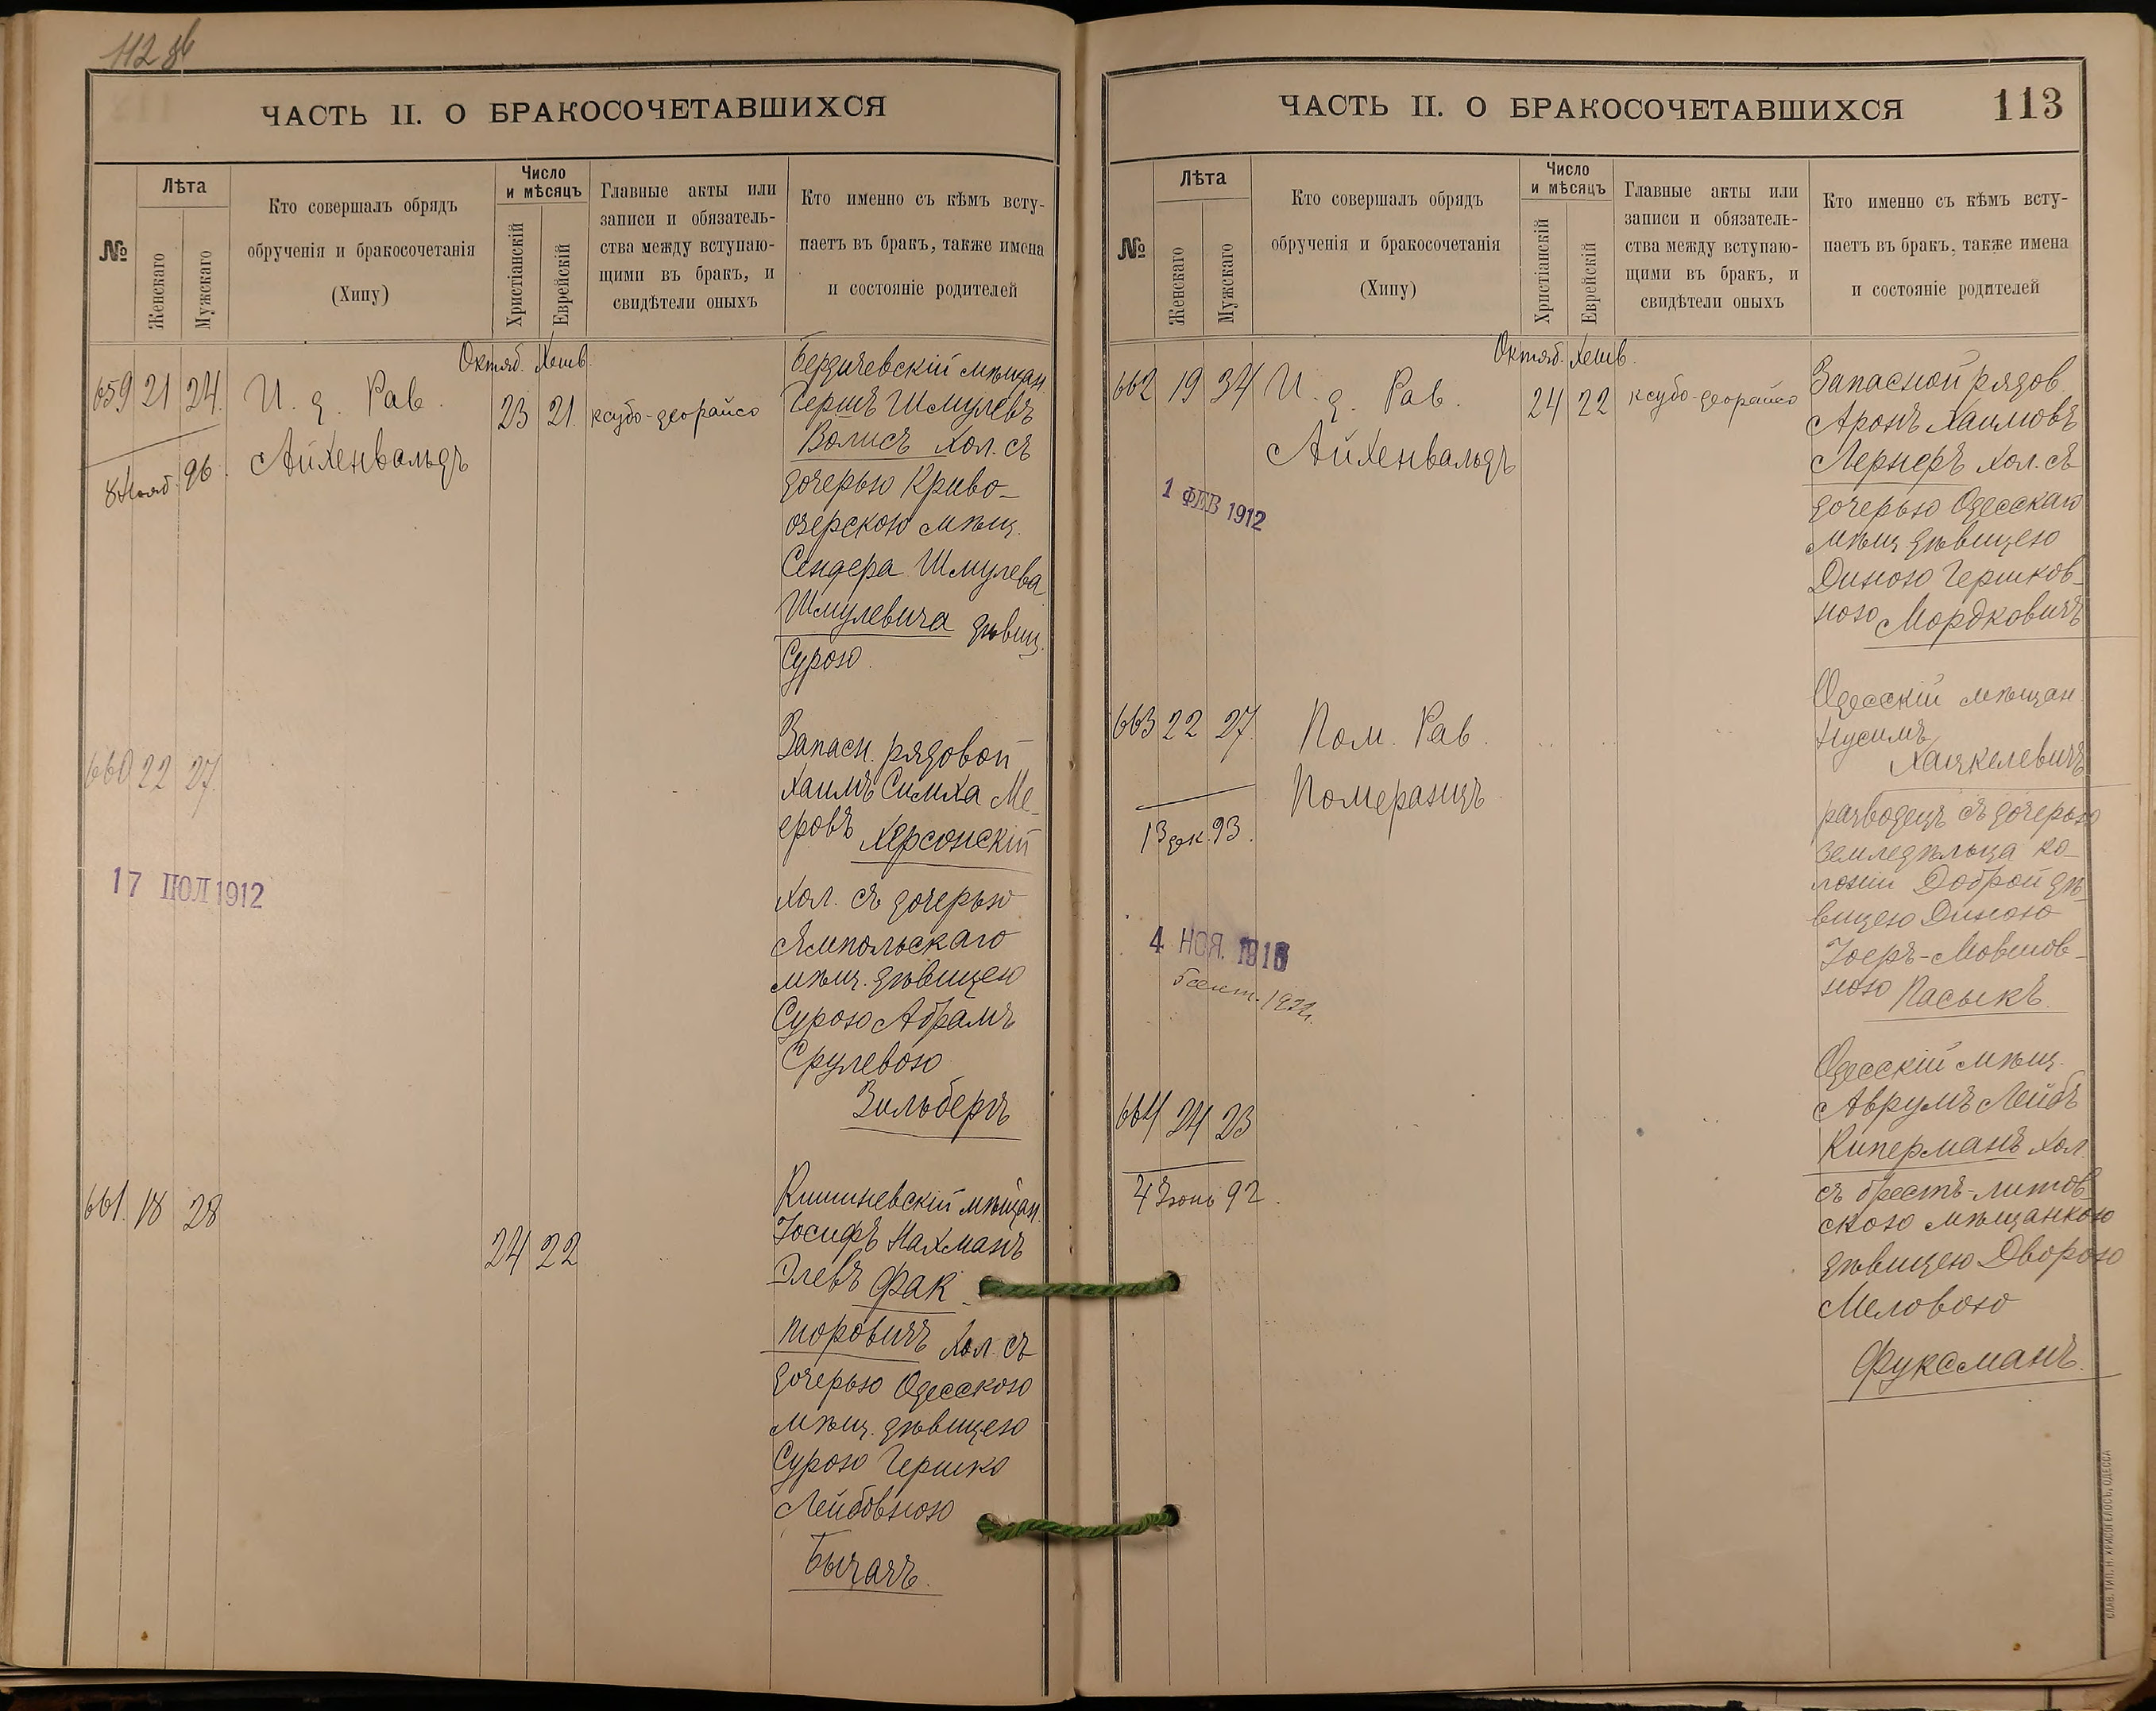 112 об
ЧАСТЬ II. О БРАКОСОЧЕТАВШИХСЯ
№
Лѣта
Женскаго
Мужскаго
Кто совершалъ обрядъ
обрученія и бракосочетанія
(Хипу)
Число
и мѣсяцъ
Христіанскій
Еврейскій
Главные акты или
записи и обязатель-
ства между вступаю-
щими въ бракъ, и
свидѣтели оныхъ
Кто именно съ кѣмъ всту-
паетъ въ бракъ, также имена
и состояніе родителей
659 21 24
И. д. Рав.
Айхенвальдъ
8 Нояб. 96.
Октяб. Хешв.
23 21
ксубо-деорайсо
Бердичевскій мѣщан.
Гершъ Шмулевъ
Волисъ хол. съ
дочерью Криво-
озерскою мѣщ.
Сендера Шмулева
Шмулевича дѣвиц.
Сурою.
660 22 27.
17 ІЮЛ 1912
Запасн. рядовой
Хаимъ Симха Ме-
еровъ Херсонскій
хол. съ дочерью
Ямпольскаго
мѣщ. дѣвицею
Сурою Абрамъ
Срулевою
Зильбергъ
661. 18 28
24 22
Кишиневскій мѣщан.
Іосифъ Нахманъ
Элевъ Фак-
торовичъ хол. съ
дочерью Одесскою
мѣщ. дѣвицею
Сурою Гершко
Лейбовною
Бычачъ.
ЧАСТЬ II. О БРАКОСОЧЕТАВШИХСЯ
113
№
Лѣта
Женскаго
Мужскаго
Кто совершалъ обрядъ
обрученія и бракосочетанія
(Хипу)
Число
и мѣсяцъ
Христіанскій
Еврейскій
Главные акты или
записи и обязатель-
ства между вступаю-
щими въ бракъ, и
свидѣтели оныхъ
Кто именно съ кѣмъ всту-
паетъ въ бракъ, также имена
и состояніе родителей
662 19 34
И. д. Рав.
Айхенвальдъ
1 ФЕВ 1912
Октяб. Хешв.
24 22
ксубо-деорайсо
Запасной рядов.
Аронъ Хаимовъ
Лернеръ хол. съ
дочерью Одесскаго
мѣщ. дѣвицею
Диною Гершков-
ною Мордковичъ
663 22 27.
Пом. Рав.
Померанцъ
13 дек. 93.
4 НОЯ. 1915
5 сент. 1922г.
Одесскій мѣщан.
Нусимъ
Хацкелевичъ
разводецъ съ дочерью
земледѣльца ко-
лоніи Доброй дѣ-
вицею Диною
Іосръ-Мовшов-
ною Пасыкъ.
664 24 23
4 Іюнь 92.
Одесскій мѣщ.
Аврумъ Лейбъ
Киперманъ хол.
съ брестъ-литов-
скою мѣщанкою
дѣвицею Дворою
Меловою
Фуксманъ.
СЛАВ. ТИП. Н. ХРИСОГЕЛОСЪ, ОДЕССА